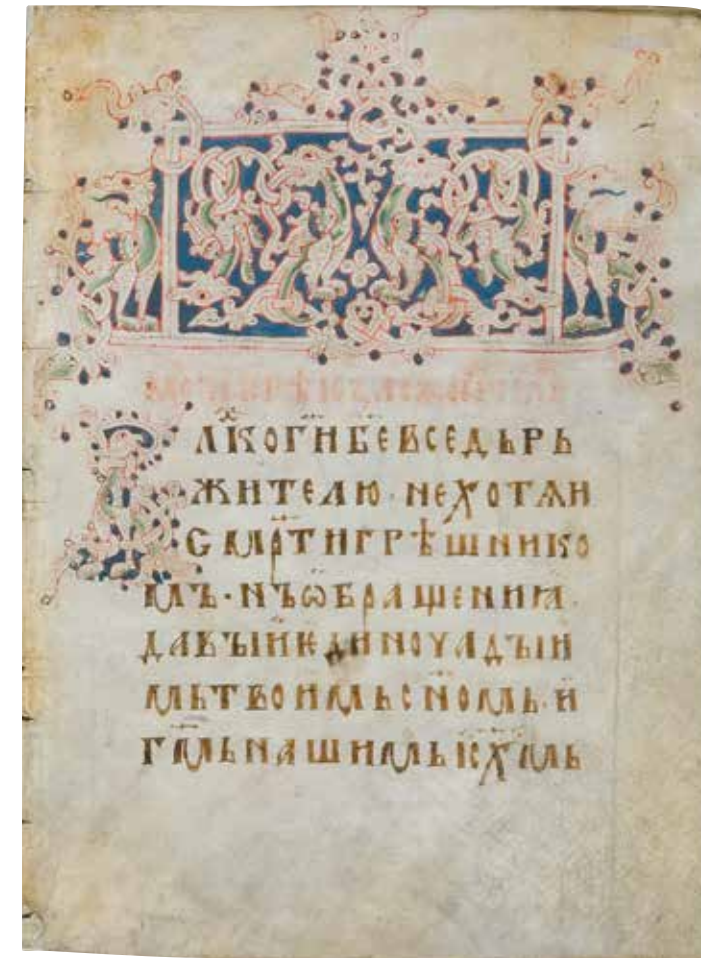 Влⷣкогⷭ҇и бж҃е вседьрь
жителю · не хотѧи
смⷬ҇ти грѣшнико
мъ · нъ ѡбращениꙗ ·
давъıи ѥдиноч҄адъıи
мьтвоимьс҃номь · и
г҃мь нашимь іс҃х҃мь